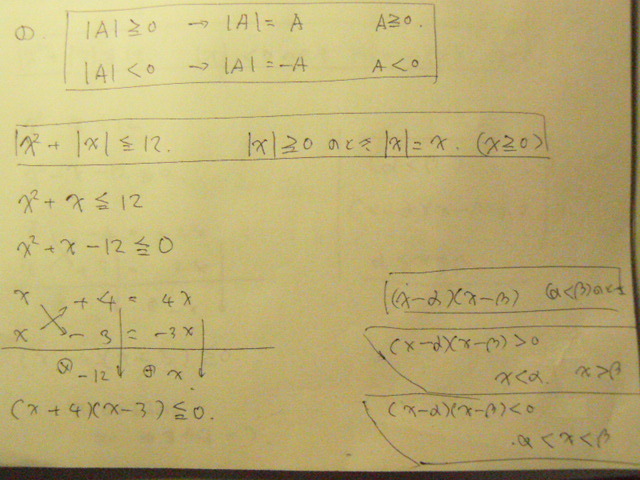 ① |A| ≧ 0 → |A| = A A ≧ 0.
|A| < 0 → |A| = -A A < 0
x² + |x| ≦ 12. |x| ≧ 0 のとき |x| = x. (x ≧ 0)
x² + x ≦ 12
x² + x - 12 ≦ 0
x + 4 = 4x
x - 3 = -3x
⊗ -12 ⊕ x
(x + 4)(x - 3) ≦ 0.
(x - α)(x - β) (α < β) のとき
(x - α)(x - β) > 0
x < α. x > β
(x - α)(x - β) < 0
α < x < β